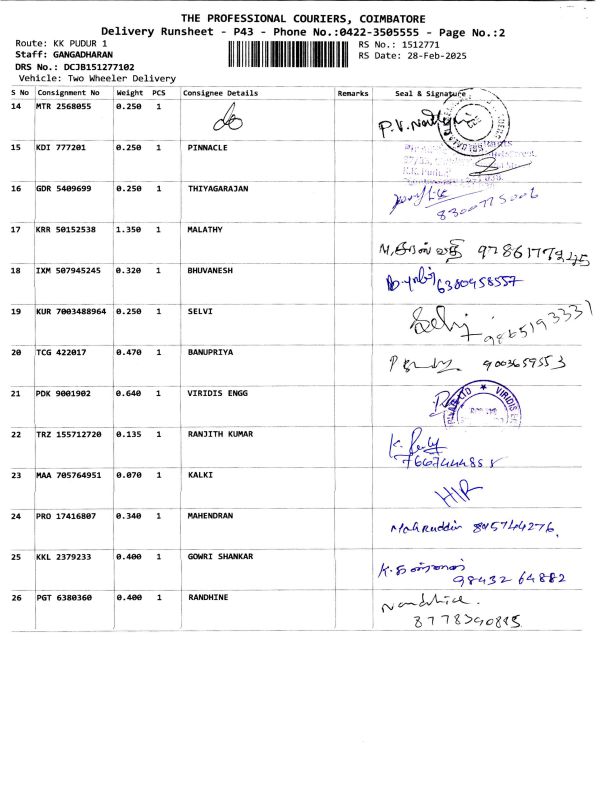 THE PROFESSIONAL COURIERS, COIMBATORE
Delivery Runsheet - P43 - Phone No.:0422-3505555 - Page No.:2
Route: KK PUDUR 1
RS No.: 1512771
Staff: GANGADHARAN
RS Date: 28-Feb-2025
DRS No.: DCJB151277102
Vehicle: Two Wheeler Delivery
S No Consignment No Weight PCS Consignee Details Remarks Seal & Signature
14 MTR 2568055 0.250 1
15 KDI 777201 0.250 1 PINNACLE
16 GDR 5409699 0.250 1 THIYAGARAJAN
8300775006
17 KRR 50152538 1.350 1 MALATHY
9786177245
18 IXM 507945245 0.320 1 BHUVANESH
6380958557
19 KUR 7003488964 0.250 1 SELVI
Selvi
9865193331
20 TCG 422017 0.470 1 BANUPRIYA
9003659553
21 PDK 9001902 0.640 1 VIRIDIS ENGG
22 TRZ 155712720 0.135 1 RANJITH KUMAR
23 MAA 705764951 0.070 1 KALKI
24 PRO 17416807 0.340 1 MAHENDRAN
25 KKL 2379233 0.400 1 GOWRI SHANKAR
98432 64882
26 PGT 6380360 0.400 1 RANDHINE